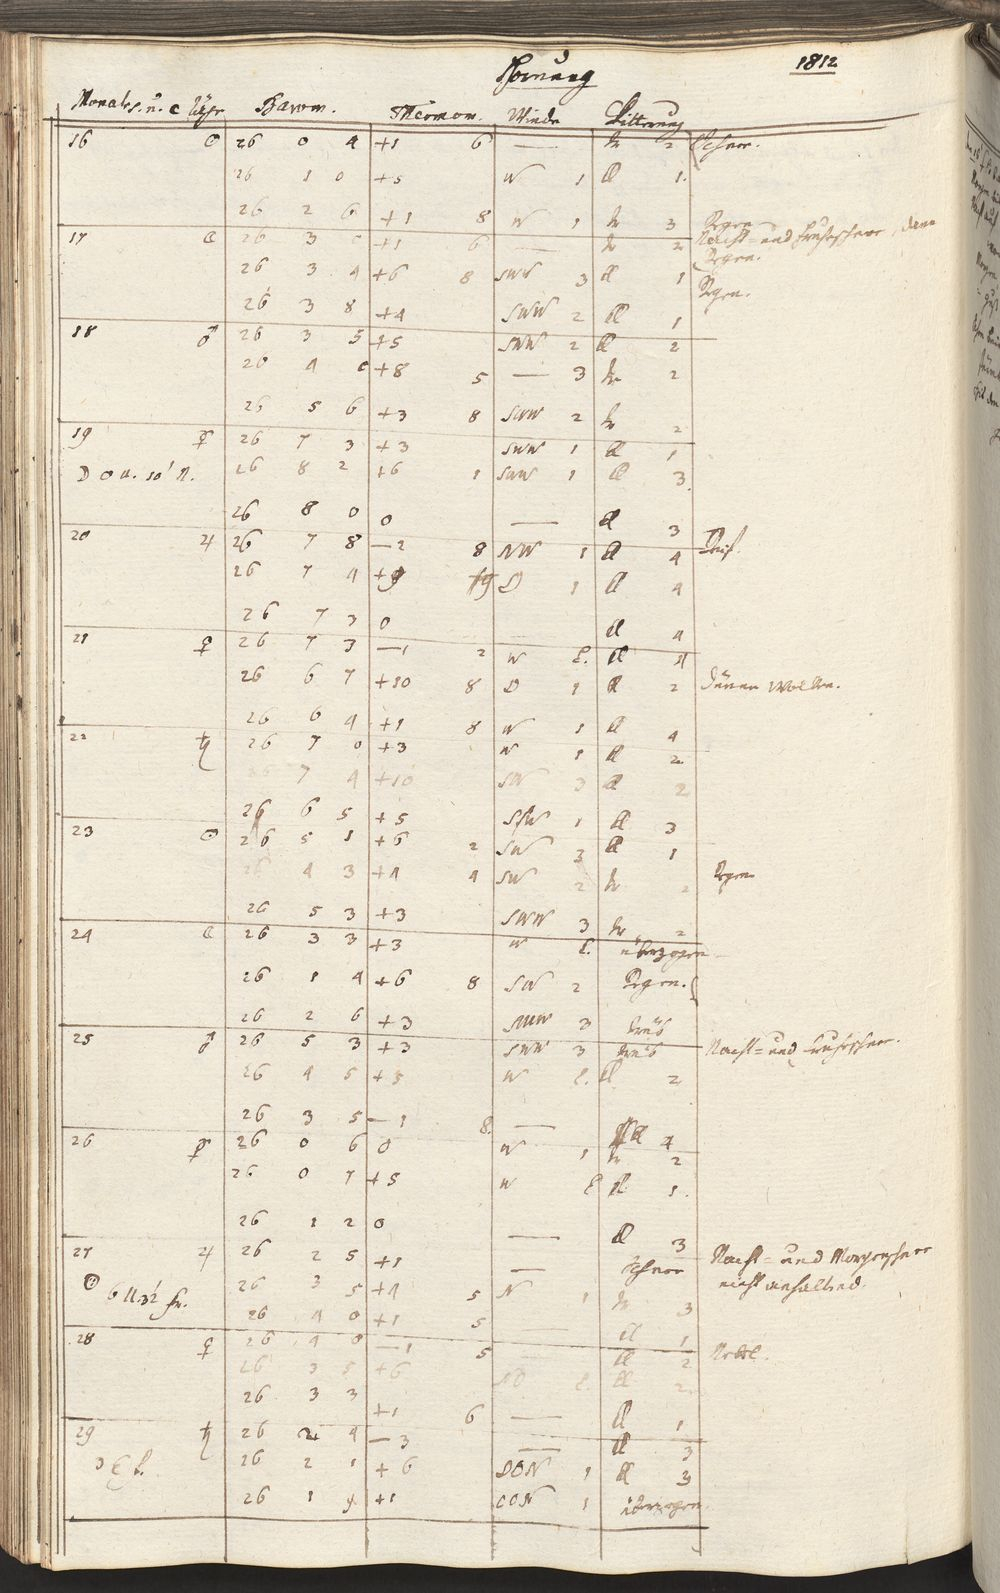 Hornung 1812
Monats u. C Barom. Thermom. Winde Witterung
16 ☉ 26 0 4 +1 6 — tr 2 Schnee.
26 1 0 +5 W 1 A 1.
26 2 6 +1 8 W 1 tr 3 Regen
17 ☾ 26 3 0 +1 6 — tr 2 Nacht= und Frühschnee, dann
Regen.
26 3 4 +6 8 SWW 3 A 1 Regen.
26 3 8 +4 SWW 2 A 1
18 ♂ 26 3 5 +5 SWW 2 A 2
26 4 0 +8 5 — 3 tr 2
26 5 6 +3 8 SWW 2 tr 2
19 ☿ 26 7 3 +3 SWW 1 A 1
26 8 2 +6 1 SWW 1 A 3.
26 8 0 0 — A 3
20 ♃ 26 7 8 —2 8 NW 1 A 4 Reif.
26 7 4 +9 O 1 A 4
26 7 3 0 A 4
21 ♀ 26 7 3 —1 2 W A
26 6 7 +10 8 O 1 A 2 dünne Wolken.
26 6 4 +1 8 W 1 A 4
22 ♄ 26 7 0 +3 W 1 A 2
26 7 4 +10 SW 3 A 2
26 6 5 +5 SSW 1 A 3
23 ☉ 26 5 1 +6 2 SW 3 A 1
26 4 3 +4 4 SW 2 tr 2 Regen
26 5 3 +3 SWW 3 tr 2
24 ☾ 26 3 3 +3 W überzogen
26 1 4 +6 8 SW 2 Regen.
26 2 6 +3 SWW 3 trüb
25 ♂ 26 5 3 +3 SWW 3 trüb Nacht= und Frühschnee.
26 4 5 +5 W A 2
26 3 5 —1 8. — A 4
26 ☿ 26 0 6 0 W 1 tr 2
26 0 7 +5 W A 1.
26 1 2 0 — A 3
27 ♃ 26 2 5 +1 — Schnee Nacht= und Morgenschnee
nicht anhaltend.
6 U. 32' fr. 26 3 5 +4 5 N 1 tr 3
26 4 0 +1 5 — A 1
28 ♀ 26 4 0 —1 5 — A 2 Nebel.
26 3 5 +6 NO A 2
26 3 3 +1 6 — A 1
29 ♄ 26 2 4 —3 — A 3
26 2 1 +6 OON 1 A 3
26 1 +1 OON 1 überzogen.